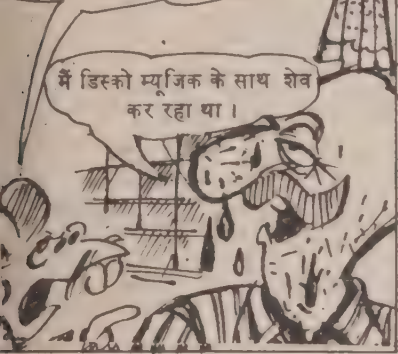 मैं डिस्को म्यूजिक के साथ शेव
कर रहा था ।